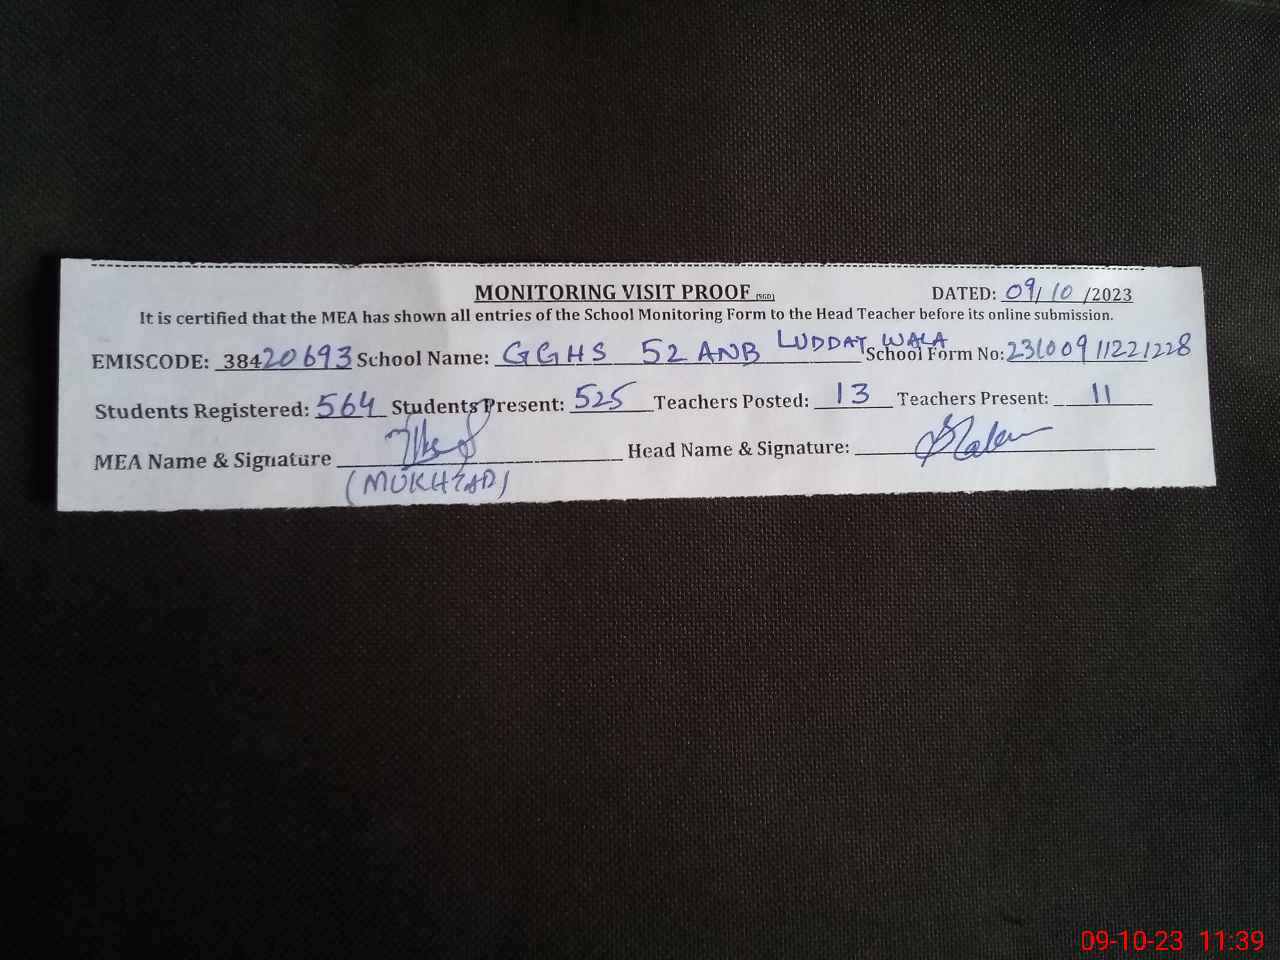 MONITORING VISIT PROOF (SGD) DATED: 09/10/2023
It is certified that the MEA has shown all entries of the School Monitoring Form to the Head Teacher before its online submission.
EMISCODE: 38420693 School Name: GGHS 52 ANB LUDDAT WALA School Form No: 23100911221228
Students Registered: 564 Students Present: 525 Teachers Posted: 13 Teachers Present: 11
MEA Name & Signature Head Name & Signature:
09-10-23 11:39